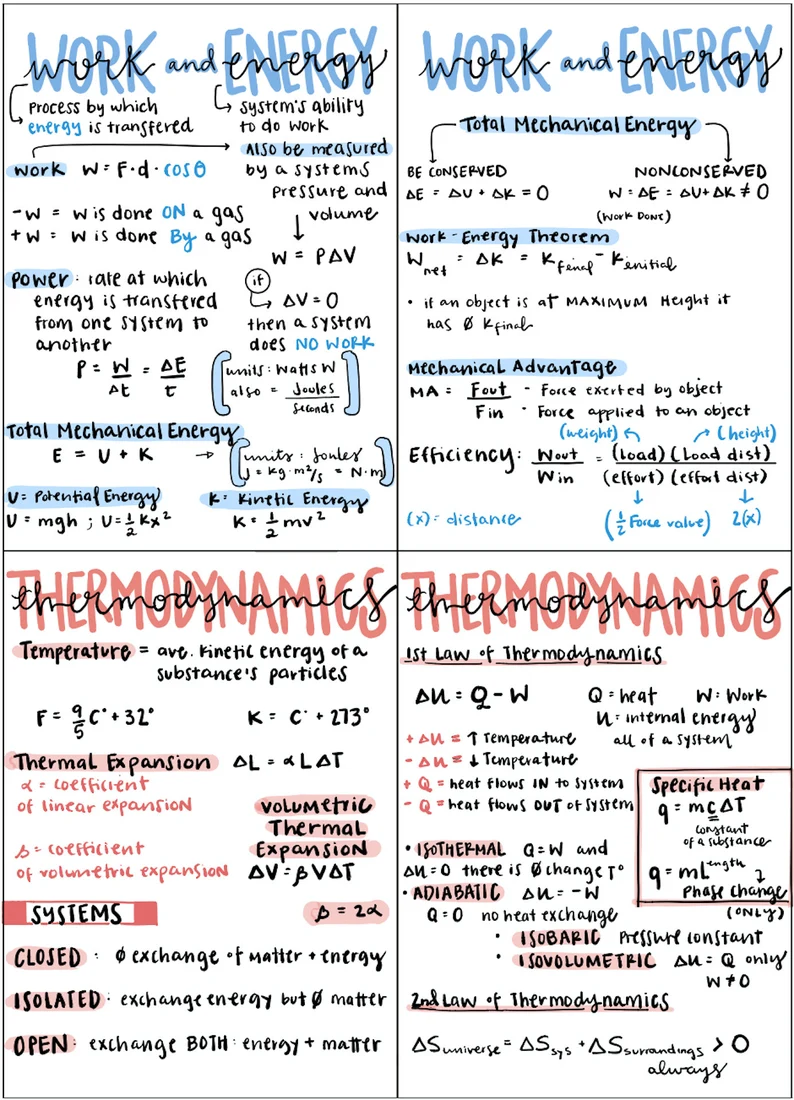 WORK and ENERGY
work and energy
process by which
energy is transfered
system's ability
to do work
Also be measured
by a systems
pressure and
volume
W = PΔV
if
ΔV = 0
then a system
does NO WORK
work W = F · d · cosθ
-W = W is done ON a gas
+W = W is done By a gas
Power : rate at which
energy is transfered
from one system to
another
P = W/Δt = ΔE/t
units : Watts W
also = Joules/seconds
Total Mechanical Energy
E = U + K → units : Joules
J = kg · m²/s = N · m
U = Potential Energy
U = mgh ; U = 1/2 Kx²
K = Kinetic Energy
K = 1/2 mv²
WORK and ENERGY
work and energy
Total Mechanical Energy
BE CONSERVED
ΔE = ΔU + ΔK = 0
NONCONSERVED
W = ΔE = ΔU + ΔK ≠ 0
(WORK DONE)
Work - Energy Theorem
Wnet = ΔK = Kfinal - Kinitial
• if an object is at MAXIMUM Height it
has Ø Kfinal
Mechanical Advantage
MA = Fout - Force exerted by object
Fin - Force applied to an object
(weight) (height)
Efficiency : Wout/Win = (Load)(Load dist)/(effort)(effort dist)
(x) = distance (1/2 Force value) 2(x)
THERMODYNAMICS
thermodynamics
Temperature = ave. kinetic energy of a
substance's particles
F = 9/5 C° + 32° K = C° + 273°
Thermal Expansion ΔL = αLΔT
α = coefficient
of linear expansion
β = coefficient
of volumetric expansion
volumetric
Thermal
Expansion
ΔV = βVΔT
β = 2α
SYSTEMS
CLOSED : Ø exchange of matter + energy
ISOLATED : exchange energy but Ø matter
OPEN : exchange BOTH : energy + matter
THERMODYNAMICS
thermodynamics
1st Law of Thermodynamics
ΔU = Q - W
Q = heat W = Work
U = internal energy
all of a system
+ ΔU = ↑ Temperature
- ΔU = ↓ Temperature
+ Q = heat flows IN to system
- Q = heat flows OUT of system
Specific Heat
q = mcΔT
constant
of a substance
q = mLength
phase change
(ONLY)
• ISOTHERMAL Q = W and
ΔU = 0 there is Ø change T°
• ADIABATIC ΔU = -W
Q = 0 no heat exchange
• ISOBARIC Pressure constant
• ISOVOLUMETRIC ΔU = Q only
W ≠ 0
2nd Law of Thermodynamics
ΔSuniverse = ΔSsys + ΔSsurrondings > 0
always